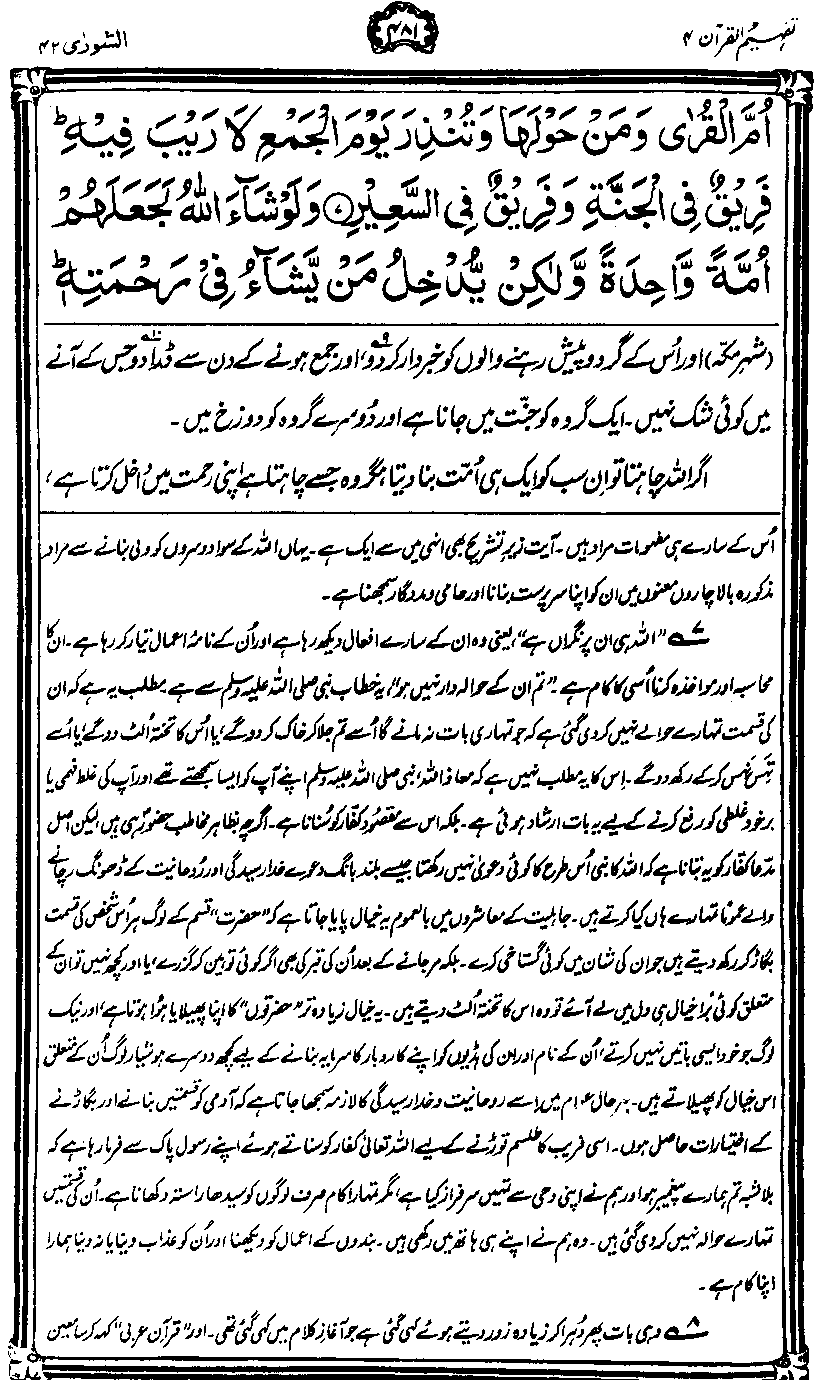 تفہیم القرآن ۴
۴۸۱
الشورٰی ۴۲
اُمَّ الْقُرٰى وَمَنْ حَوْلَهَا وَتُنْذِرَ يَوْمَ الْجَمْعِ لَا رَيْبَ فِيْهِ ؕ
فَرِيْقٌ فِى الْجَنَّةِ وَفَرِيْقٌ فِى السَّعِيْرِ ﴿۷﴾ وَلَوْ شَآءَ اللّٰهُ لَجَعَلَهُمْ
اُمَّةً وَّاحِدَةً وَّلٰكِنْ يُّدْخِلُ مَنْ يَّشَآءُ فِىْ رَحْمَتِهٖ ؕ
(شہرِ مکّہ) اور اُس کے گرد و پیش رہنے والوں کو خبردار کر دو۹، اور جمع ہونے کے دن سے ڈرا دو۱۰ جس کے آنے
میں کوئی شک نہیں۔ ایک گروہ کو جنّت میں جانا ہے اور دُوسرے گروہ کو دوزخ میں۔
اگر اللہ چاہتا تو اِن سب کو ایک ہی اُمّت بنا دیتا، مگر وہ جسے چاہتا ہے اپنی رحمت میں داخل کرتا ہے،
اُس کے سارے ہی مفہومات مراد ہیں۔ آیت زیرِ تشریح بھی انہی میں سے ایک ہے۔ یہاں اللہ کے سوا دوسروں کو ولی بنانے سے مراد
مذکورہ بالا چاروں معنوں میں ان کو اپنا سرپرست بنانا اور حامی و مددگار سمجھنا ہے۔
۷ "اللہ ہی ان پر نگراں ہے"، یعنی وہ ان کے سارے افعال دیکھ رہا ہے اور اُن کے نامۂ اعمال تیار کر رہا ہے۔ ان کا
محاسبہ اور مواخذہ کرنا اُسی کا کام ہے۔ "تم ان کے حوالہ دار نہیں ہو"، یہ خطاب نبی صلی اللہ علیہ وسلم سے ہے۔ مطلب یہ ہے کہ ان
کی قسمت تمہارے حوالے نہیں کر دی گئی ہے کہ جو تمہاری بات نہ مانے گا اُسے تم جلا کر خاک کر دو گے، یا اُس کا تختہ اُلٹ دو گے، یا اُسے
تہس نہس کر کے رکھ دو گے۔ اِس کا یہ مطلب نہیں ہے کہ معاذ اللہ! نبی صلی اللہ علیہ وسلم اپنے آپ کو ایسا سمجھتے تھے اور آپ کی غلط فہمی یا
برخود غلطی کو رفع کرنے کے لیے یہ بات ارشاد ہوئی ہے۔ بلکہ اس سے مقصُود کفّار کو سُنانا ہے۔ اگرچہ بظاہر مخاطب حضورؐ ہی ہیں، لیکن اصل
مدّعا کفّار کو یہ بتانا ہے کہ اللہ کا نبی اُس طرح کا کوئی دعویٰ نہیں رکھتا جیسے بلند بانگ دعوے خدا رسیدگی اور رُوحانیت کے ڈھونگ رچانے
والے عموماً تمہارے ہاں کیا کرتے ہیں۔ جاہلیت کے معاشروں میں بالعموم یہ خیال پایا جاتا ہے کہ "حضرت" قسم کے لوگ ہر اُس شخص کی قسمت
بگاڑ کر رکھ دیتے ہیں جو ان کی شان میں کوئی گستاخی کرے۔ بلکہ مر جانے کے بعد اُن کی قبر کی بھی اگر کوئی توہین کر گزرے، یا اور کچھ نہیں تو ان کے
متعلق کوئی بُرا خیال ہی دل میں لے آئے تو وہ اس کا تختہ اُلٹ دیتے ہیں۔ یہ خیال زیادہ تر "حضرتوں" کا اپنا پھیلایا ہُوا ہوتا ہے، اور نیک
لوگ جو خود ایسی باتیں نہیں کرتے، اُن کے نام اور ان کی ہڈیوں کو اپنے کاروبار کا سرمایہ بنانے کے لیے کچھ دوسرے ہوشیار لوگ اُن کے متعلق
اس خیال کو پھیلاتے ہیں۔ بہرحال عوام میں اسے روحانیت و خدا رسیدگی کا لازمہ سمجھا جاتا ہے کہ آدمی کو قسمتیں بنانے اور بگاڑنے
کے اختیارات حاصل ہوں۔ اسی فریب کا طلسم توڑنے کے لیے اللہ تعالیٰ کفّار کو سناتے ہوئے اپنے رسول پاک سے فرما رہا ہے کہ
بلاشبہ تم ہمارے پیغمبر ہو اور ہم نے اپنی وحی سے تمہیں سرفراز کیا ہے، مگر تمہارا کام صرف لوگوں کو سیدھا راستہ دکھانا ہے۔ اُن کی قسمتیں
تمہارے حوالہ نہیں کر دی گئی ہیں۔ وہ ہم نے اپنے ہی ہاتھ میں رکھی ہیں۔ بندوں کے اعمال کو دیکھنا اور اُن کو عذاب دینا یا نہ دینا ہمارا
اپنا کام ہے۔
۸ وہی بات پھر دُہرا کر زیادہ زور دیتے ہوئے کہی گئی ہے جو آغازِ کلام میں کہی گئی تھی۔ اور "قرآنِ عربی" کہہ کر سامعین